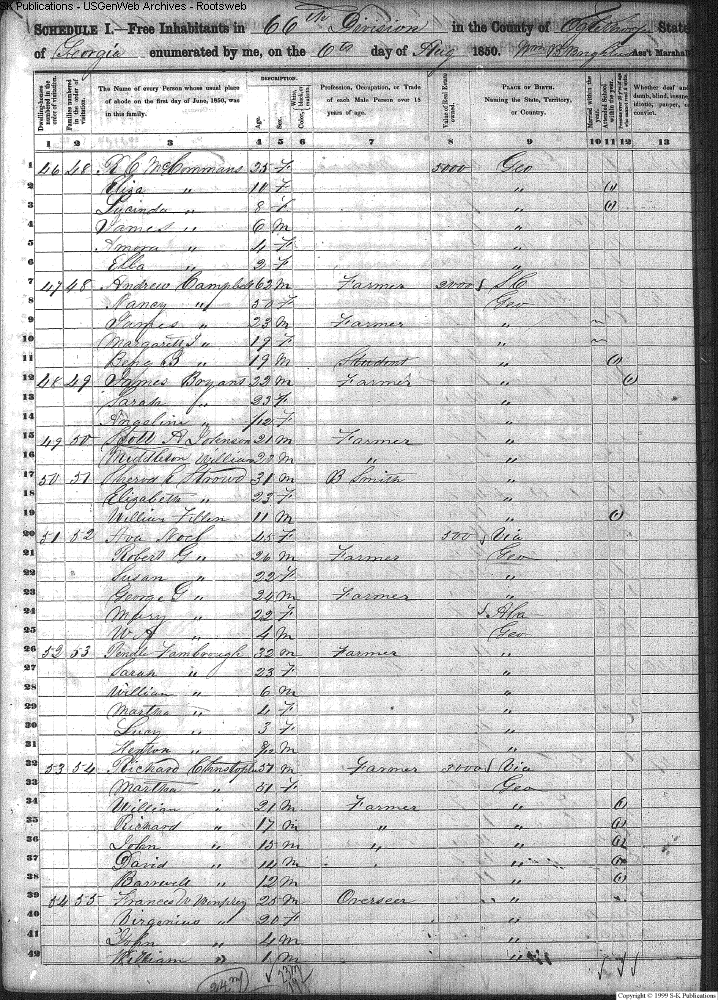 S-K Publications - USGenWeb Archives - Rootsweb
SCHEDULE I.—Free Inhabitants in 66th Division in the County of Oglethorpe State
of Georgia enumerated by me, on the 6th day of Aug 1850. Wm Ass't Marshal
Dwelling-houses numbered in the order of visitation. Families numbered in the order of visitation. The Name of every Person whose usual place of abode on the first day of June, 1850, was in this family. DESCRIPTION. Age. Sex. White, black or mulatto. Profession, Occupation, or Trade of each Male Person over 15 years of age. Value of Real Estate owned. PLACE OF BIRTH. Naming the State, Territory, or Country. Married within the year. Attended School within the year. Whether deaf and dumb, blind, insane, idiotic, pauper, or convict.
1 2 3 4 5 6 7 8 9 10 11 12 13
1 46 48 R C McCommans 35 F 5000 Geo
2 Eliza " 10 F " 1
3 Lucinda " 8 F " 1
4 James " 6 M "
5 Amora " 4 F "
6 Ella " 2 F "
7 47 48 Andrew Campbell 62 M Farmer 2000 SC
8 Nancy " 50 F Geo
9 James " 23 M Farmer "
10 Margarett " 19 F "
11 Benj B " 19 M Student " 1
12 48 49 James Boyans 22 M Farmer " 1
13 Sarah " 23 F "
14 Angeline " /12 F "
15 49 50 Scott A Johnson 21 M Farmer "
16 Middleton William 22 M " "
17 50 51 Sherod Strowd 31 M B Smith "
18 Elizabeth " 23 F "
19 William 11 M " 1
20 51 52 Ava Nock 45 F 500 Via
21 Robert G " 26 M Farmer Geo
22 Susan " 22 F "
23 George G " 24 M Farmer "
24 Mary " 22 F Ala
25 W A " 4 M Geo
26 52 53 32 M Farmer "
27 Sarah " 23 F "
28 William " 6 M "
29 Martha " 4 F "
30 Lucy " 3 F "
31 Henton " M "
32 53 54 Richard Christopher 51 M Farmer 3000 Via
33 Martha " 51 F Geo
34 William " 21 M Farmer " 1
35 Richard " 17 M " " 1
36 John " 15 M " " 1
37 David " 14 M " 1
38 Barnwell " 12 M " 1
39 54 55 Frances W 25 M Overseer "
40 Virgenius " 20 F "
41 John " 4 M "
42 William " 1 M "
Copyright © 1999 S-K Publications